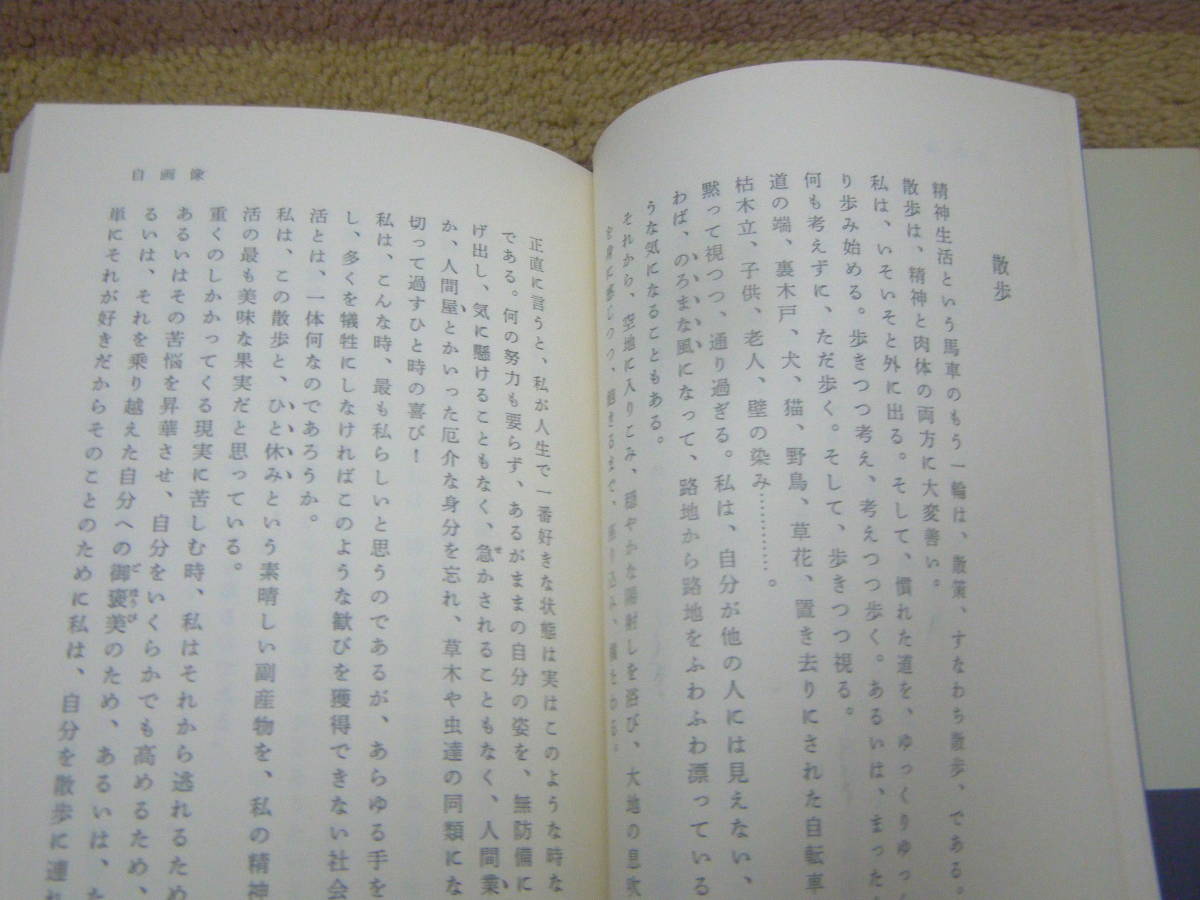 散歩
精神生活という馬車のもう一輪は、散策、すなわち散歩、である。
散歩は、精神と肉体の両方に大変善い。
私は、いそいそと外に出る。そして、慣れた道を、ゆっくりゆっく
り歩み始める。歩きつつ考え、考えつつ歩く。あるいは、まった
何も考えずに、ただ歩く。そして、歩きつつ視る。
道の端、裏木戸、犬、猫、野鳥、草花、置き去りにされた自転車
枯木立、子供、老人、壁の染み…………。
黙って視つつ、通り過ぎる。私は、自分が他の人には見えない、
わば、のろまな風になって、路地から路地をふわふわ漂っている
うな気になることもある。
それから、空地に入りこみ、穏やかな陽射しを浴び、大地の息吹
に感じつつ、飽きるまで、座り込み、横たわる。
自画像
正直に言うと、私が人生で一番好きな状態は実はこのような時な
である。何の努力も要らず、あるがままの自分の姿を、無防備に
げ出し、気に懸けることもなく、急かされることもなく、人間業
か、人間屋とかいった厄介な身分を忘れ、草木や虫達の同類にな
切って過すひと時の喜び！
私は、こんな時、最も私らしいと思うのであるが、あらゆる手を
し、多くを犠牲にしなければこのような歓びを獲得できない社会
活とは、一体何なのであろうか。
私は、この散歩と、ひと休みという素晴しい副産物を、私の精神
活の最も美味な果実だと思っている。
重くのしかかってくる現実に苦しむ時、私はそれから逃れるため
あるいはその苦悩を昇華させ、自分をいくらかでも高めるため、
るいは、それを乗り越えた自分への御褒美のため、あるいは、た
単にそれが好きだからそのことのために私は、自分を散歩に連れ